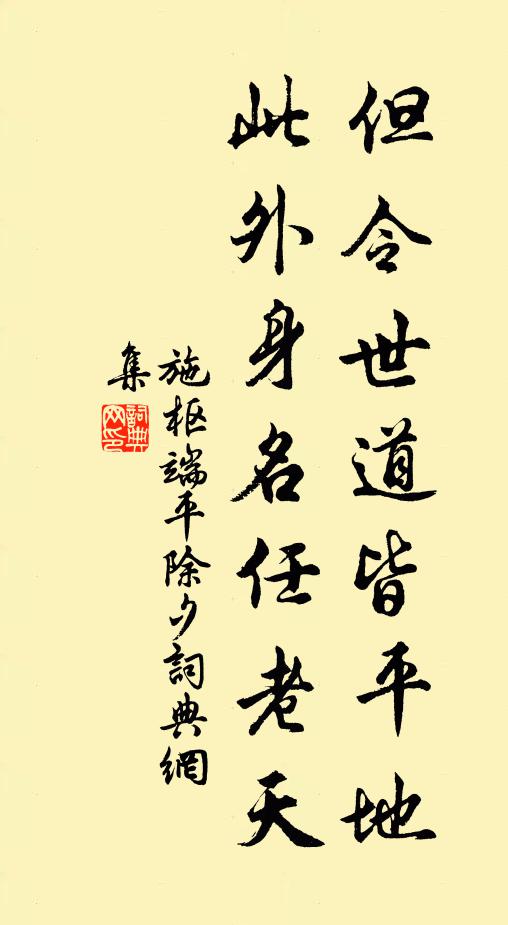 但令世道皆平地
此外身名任老天
施枢端平除夕詞典網
集
詞典
网印